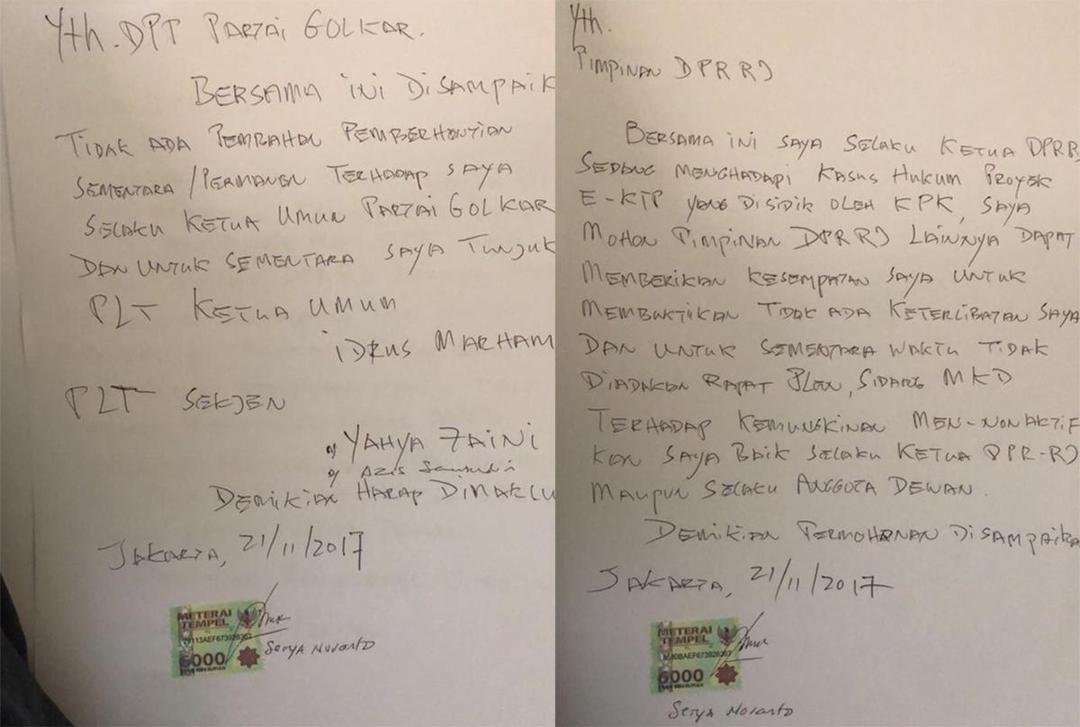 Yth. DPP PARTAI GOLKAR.
BERSAMA INI DISAMPAIK
TIDAK ADA PEMBAHAN PEMBERHENTIAN
SEMENTARA / PERMANEN TERHADAP SAYA
SELAKU KETUA UMUM PARTAI GOLKAR
DAN UNTUK SEMENTARA SAYA TUNJUK
PLT KETUA UMUM
IDRUS MARHAM
PLT SEKJEN
YAHYA ZAINI
AZIS
DEMIKIAN HARAP DIMAKLU
JAKARTA, 21/11/2017
METERAI
TEMPEL
6000
Setya Novanto
Yth.
PIMPINAN DPR RI
BERSAMA INI SAYA SELAKU KETUA DPR R
SEDANG MENGHADAPI KASUS HUKUM PROYEK
E-KTP YANG DISIDIK OLEH KPK, SAYA
MOHON PIMPINAN DPR RI LAINNYA DAPAT
MEMBERIKAN KESEMPATAN SAYA UNTUK
MEMBUKTIKAN TIDAK ADA KETERLIBATAN SAYA
DAN UNTUK SEMENTARA WAKTU TIDAK
DIADAKAN RAPAT PLENO, SIDANG MKD
TERHADAP KEMUNGKINAN MEN-NONAKTIF
KAN SAYA BAIK SELAKU KETUA DPR-RI
MAUPUN SELAKU ANGGOTA DEWAN.
DEMIKIAN PERMOHONAN DISAMPAIKA
JAKARTA, 21/11/2017
METERAI
TEMPEL
6000
Setya Novanto